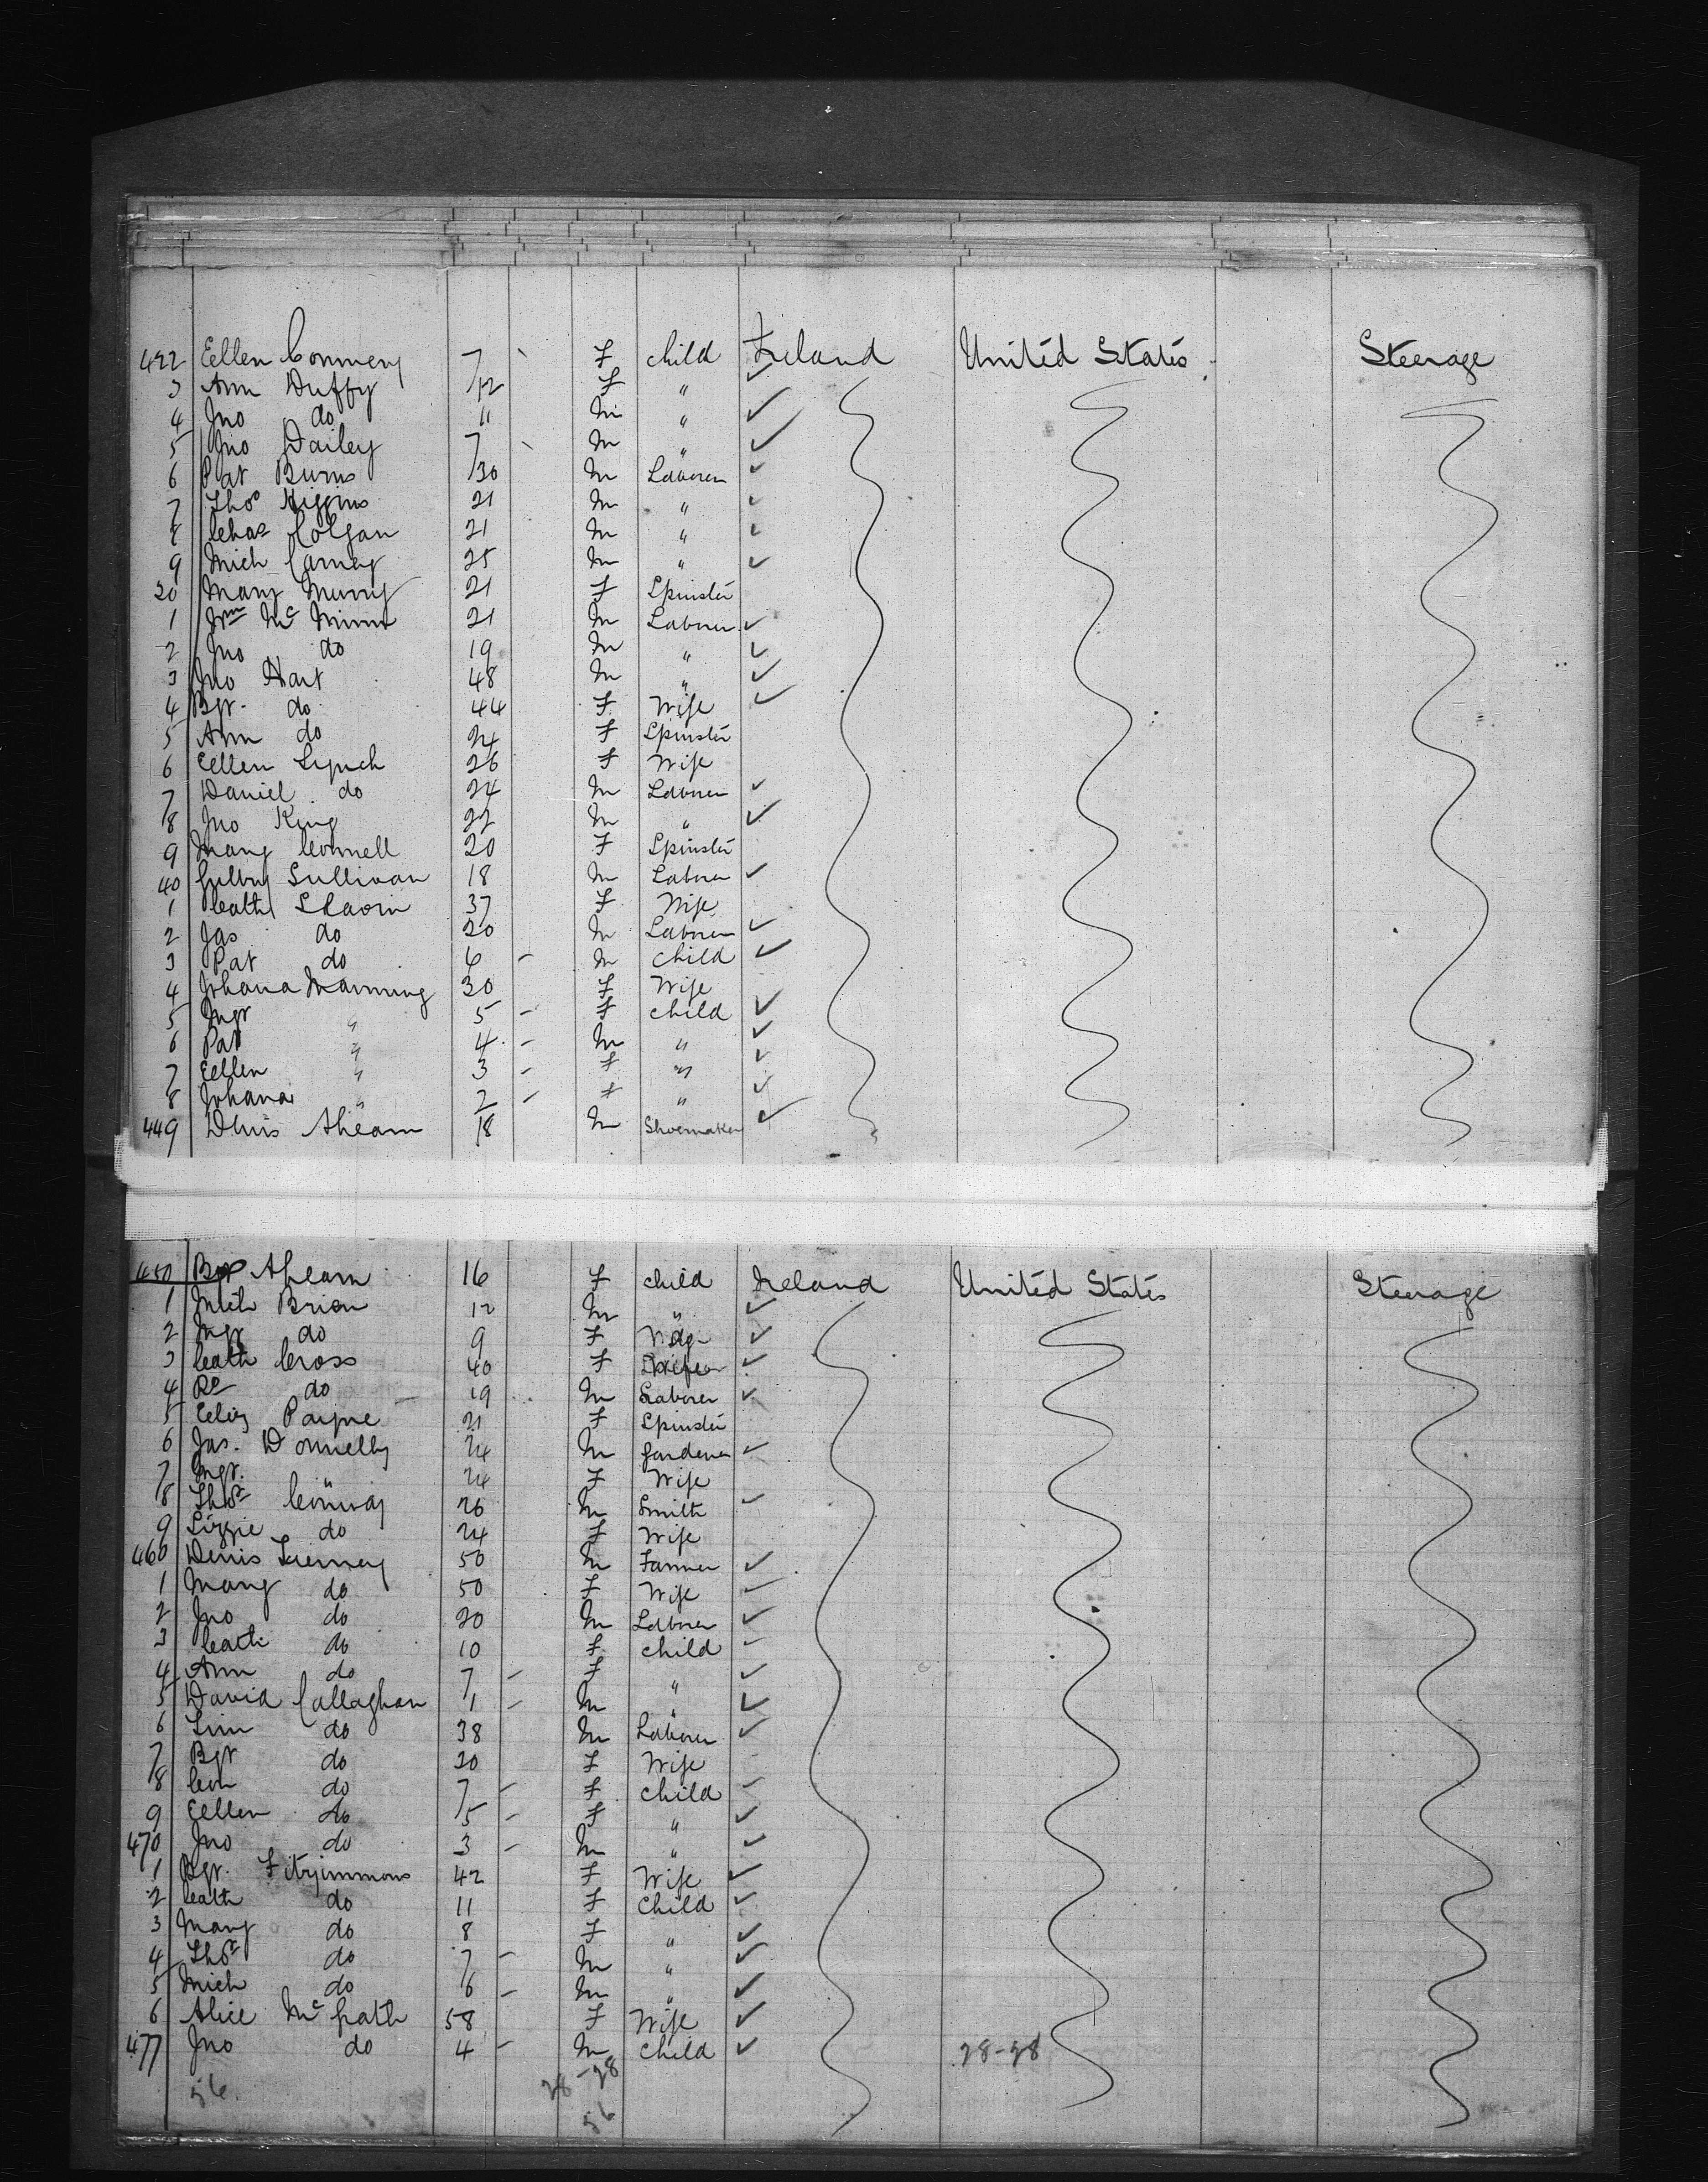 422 Eellen Conmery 7 F child Ireland United States Steerage
3 Ann Duffy 12 F "
4 Jno do 11 M "
5 Jno Dailey 7 M "
6 Pat Burns 30 M Laborer
7 Thos Higgins 21 M "
8 Chas Colgan 21 M "
9 Mich Carney 25 M "
30 Mary Murry 21 F Spinster
1 Wm McMinn 21 M Laborer
2 Jno do 19 M "
3 Jno Hart 48 M "
4 Bgt. do 44 F Wife
5 Ann do 24 F Spinster
6 Eellen Lynch 26 F Wife
7 Daniel do 24 M Laborer
8 Jno King 22 M "
9 Mary Connell 20 F Spinster
40 Sullivan 18 M Laborer
1 Cath 37 F Wife
2 Jas do 20 M Laborer
3 Pat do 6 M child
4 Johana Manning 30 F Wife
5 Mgr " 5 F child
6 Pat " 4 M "
7 Eellen " 3 F "
8 Johana " 2 F "
449 Denis Ahearn 18 M Shoemaker
450 Ahearn 16 F child Ireland United States Steerage
1 Mich Brien 12 M "
2 Mgr do 9 F do
3 Cath Cross 40 F
4 Rd do 19 M Laborer
5 Eeliz Payne 21 F Spinster
6 Jas. Donnelly 24 M Gardener
7 Mgr. " 24 F Wife
8 Thos Conway 26 M Smith
9 Lizzie do 24 F Wife
460 Denis Tierney 50 M Farmer
1 Mary do 50 F Wife
2 Jno do 20 M Laborer
3 Cath do 10 F child
4 Ann do 7 F "
5 David Callaghan 1 M "
6 Tim do 38 M Laborer
7 Bgt do 30 F Wife
8 Con do 7 F child
9 Eellen do 5 F "
470 Jno do 3 M "
1 Bgt. Fitzimmons 42 F Wife
2 Cath do 11 F Child
3 Mary do 8 F "
4 Thos do 7 M "
5 Mich do 6 M "
6 Alice McGrath 58 F Wife
477 Jno do 4 M Child 28-28
56. 28-28
56